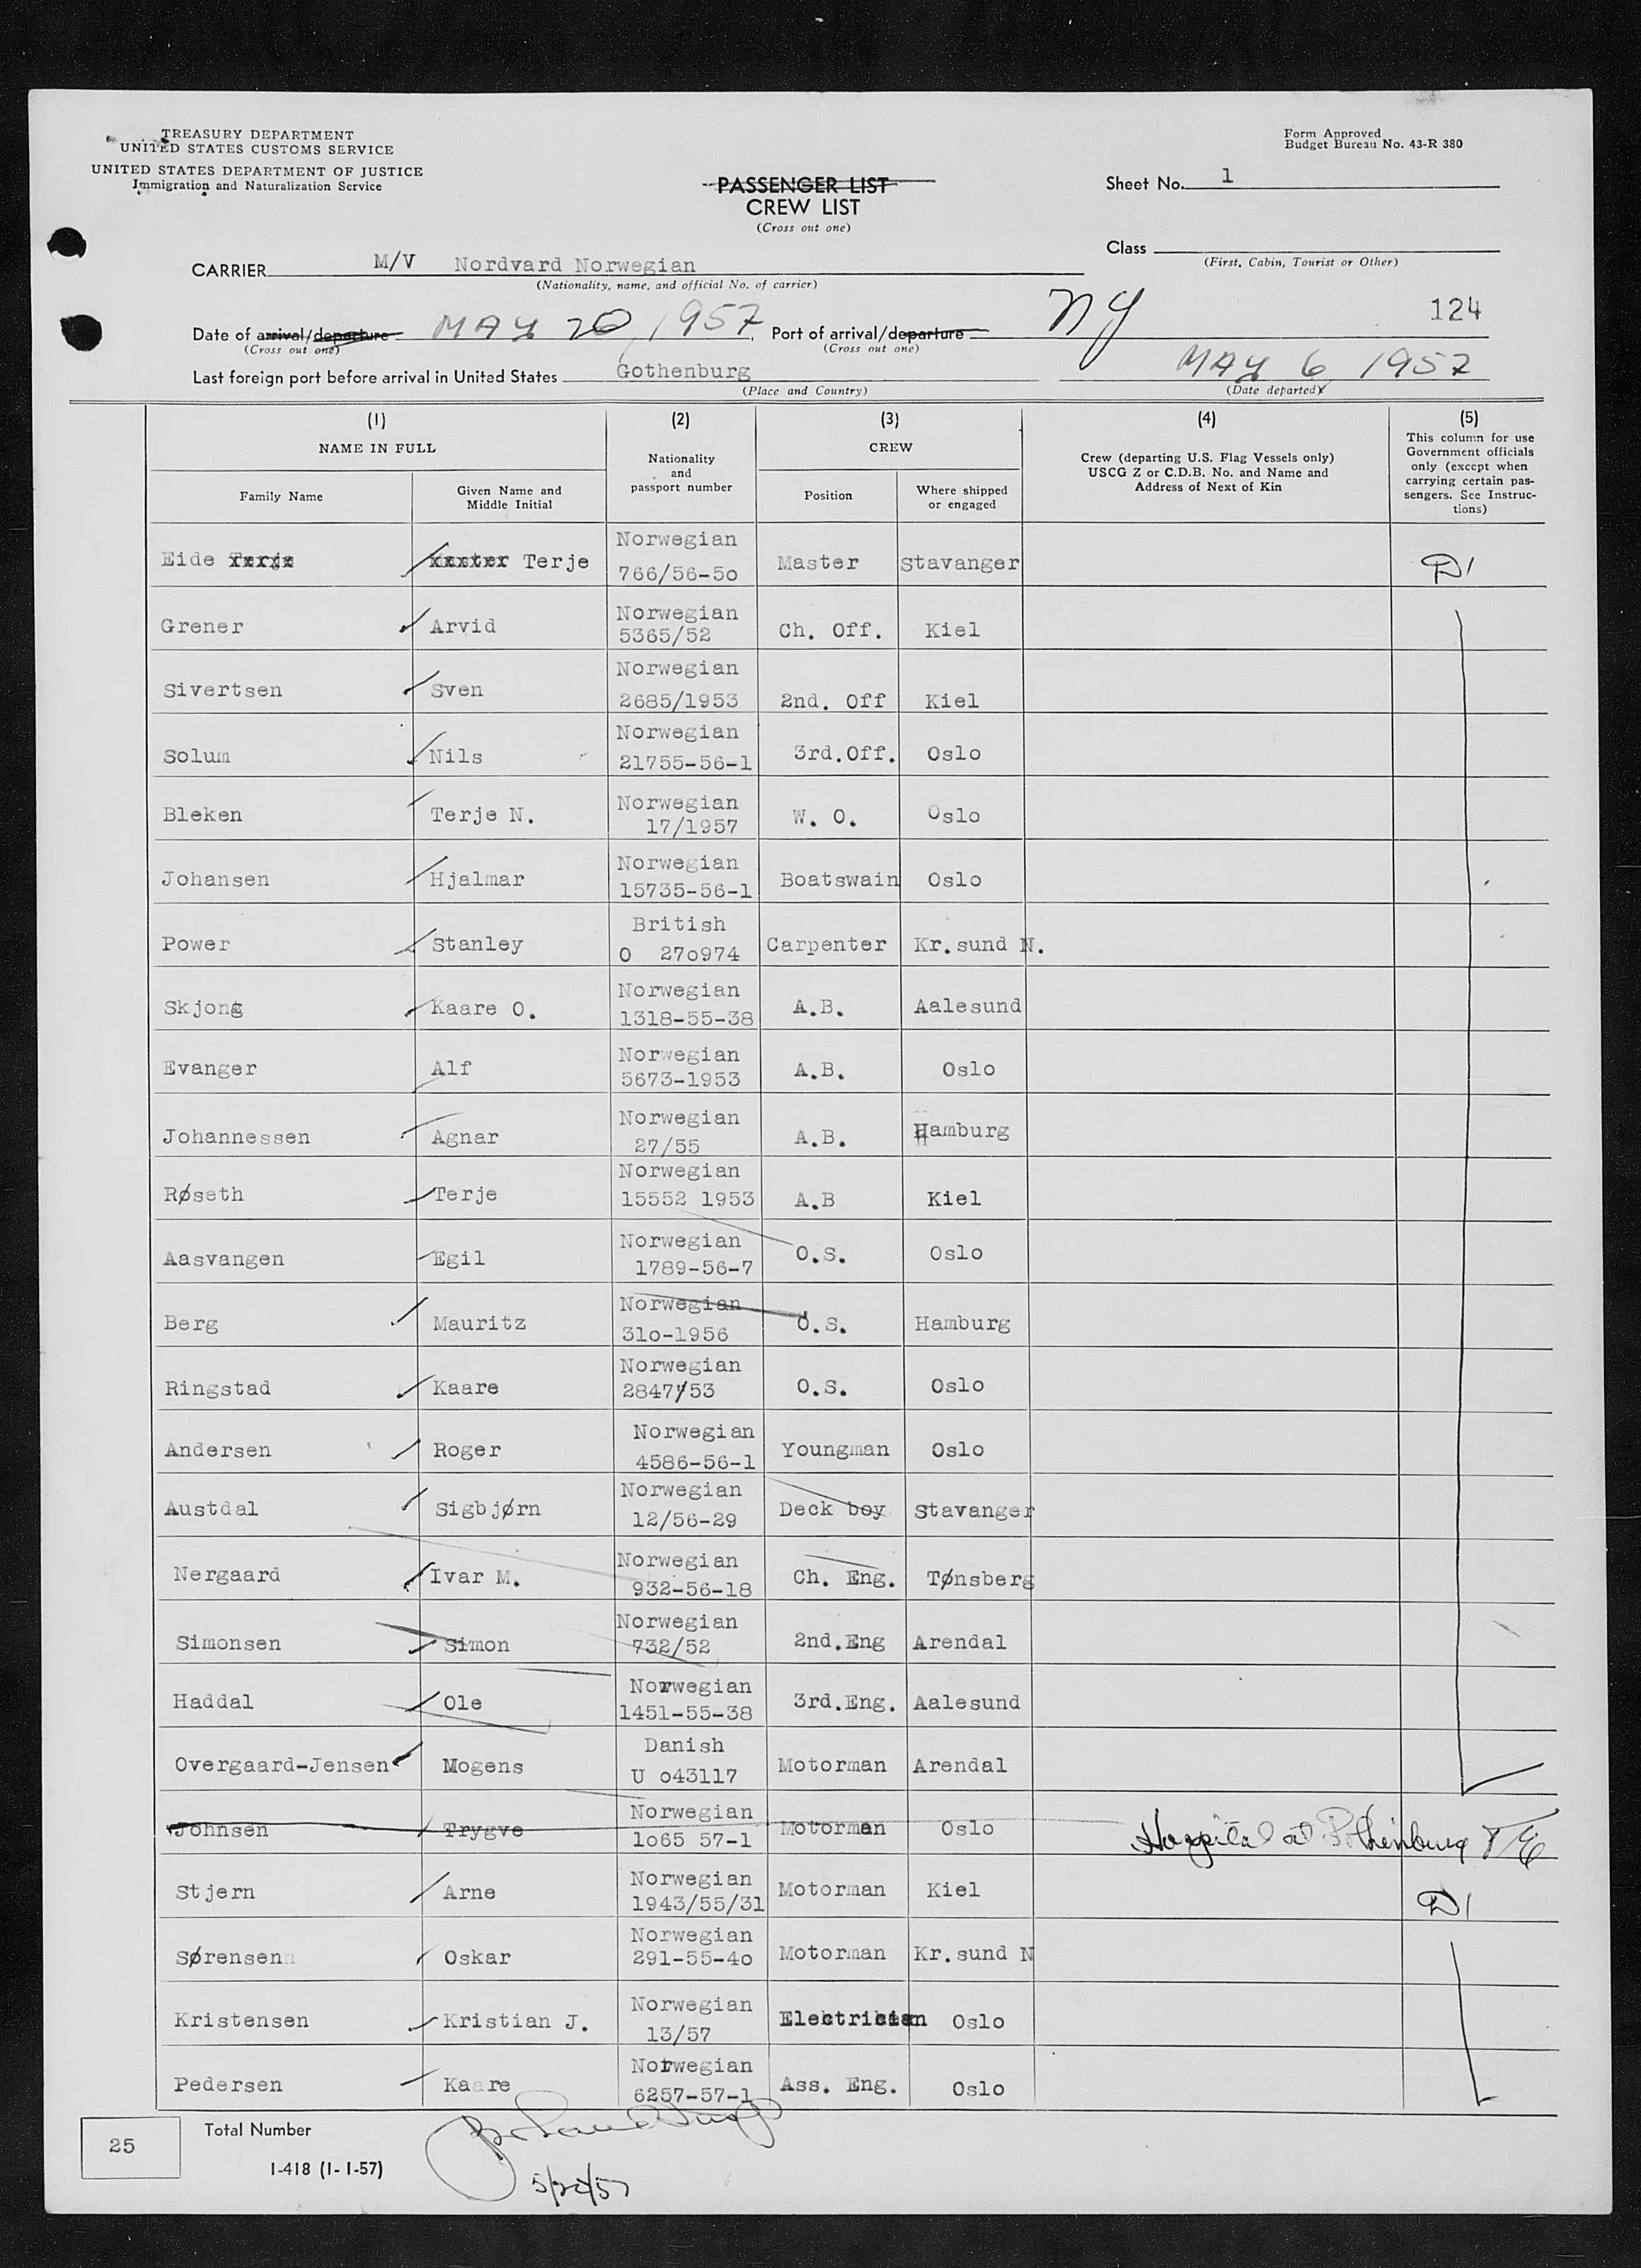 TREASURY DEPARTMENT
UNITED STATES CUSTOMS SERVICE
UNITED STATES DEPARTMENT OF JUSTICE
Immigration and Naturalization Service
Form Approved
Budget Bureau No. 43-R 380
PASSENGER LIST
CREW LIST
(Cross out one)
Sheet No. 1
Class
(First, Cabin, Tourist or Other)
CARRIER M/V Nordvard Norwegian
(Nationality, name, and official No. of carrier)
Date of arrival/departure MAY 20, 1957. Port of arrival/departure NY 124
(Cross out one) (Cross out one)
Last foreign port before arrival in United States Gothenburg MAY 6 1957
(Place and Country) (Date departed)
(1) (2) (3) (4) (5)
NAME IN FULL
Nationality
and
passport number
CREW
Crew (departing U.S. Flag Vessels only)
USCG Z or C.D.B. No. and Name and
Address of Next of Kin
This column for use
Government officials
only (except when
carrying certain pas-
sengers. See Instruc-
tions)
Family Name
Given Name and
Middle Initial
Position
Where shipped
or engaged
Eide Terje Master Terje Norwegian 766/56-5o Master Stavanger D1
Grener Arvid Norwegian 5365/52 Ch. Off. Kiel
Sivertsen Sven Norwegian 2685/1953 2nd. Off Kiel
Solum Nils Norwegian 21755-56-1 3rd.Off. Oslo
Bleken Terje N. Norwegian 17/1957 W. O. Oslo
Johansen Hjalmar Norwegian 15735-56-1 Boatswain Oslo
Power Stanley British O 27o974 Carpenter Kr.sund N.
Skjong Kaare O. Norwegian 1318-55-38 A.B. Aalesund
Evanger Alf Norwegian 5673-1953 A.B. Oslo
Johannessen Agnar Norwegian 27/55 A.B. Hamburg
Røseth Terje Norwegian 15552 1953 A.B Kiel
Aasvangen Egil Norwegian 1789-56-7 O.S. Oslo
Berg Mauritz Norwegian 31o-1956 O.S. Hamburg
Ringstad Kaare Norwegian 2847/53 O.S. Oslo
Andersen Roger Norwegian 4586-56-1 Youngman Oslo
Austdal Sigbjørn Norwegian 12/56-29 Deck boy Stavanger
Nergaard Ivar M. Norwegian 932-56-18 Ch. Eng. Tønsberg
Simonsen Simon Norwegian 732/52 2nd.Eng Arendal
Haddal Ole Norwegian 1451-55-38 3rd.Eng. Aalesund
Overgaard-Jensen Mogens Danish U o43117 Motorman Arendal
Johnsen Trygve Norwegian 1o65 57-1 Motorman Oslo Hospital at Gothenburg
Stjern Arne Norwegian 1943/55/31 Motorman Kiel D1
Sørensen Oskar Norwegian 291-55-4o Motorman Kr.sund N
Kristensen Kristian J. Norwegian 13/57 Electrician Oslo
Pedersen Kaare Norwegian 6257-57-1 Ass. Eng. Oslo
25 Total Number
I-418 (1-1-57)
5/20/57